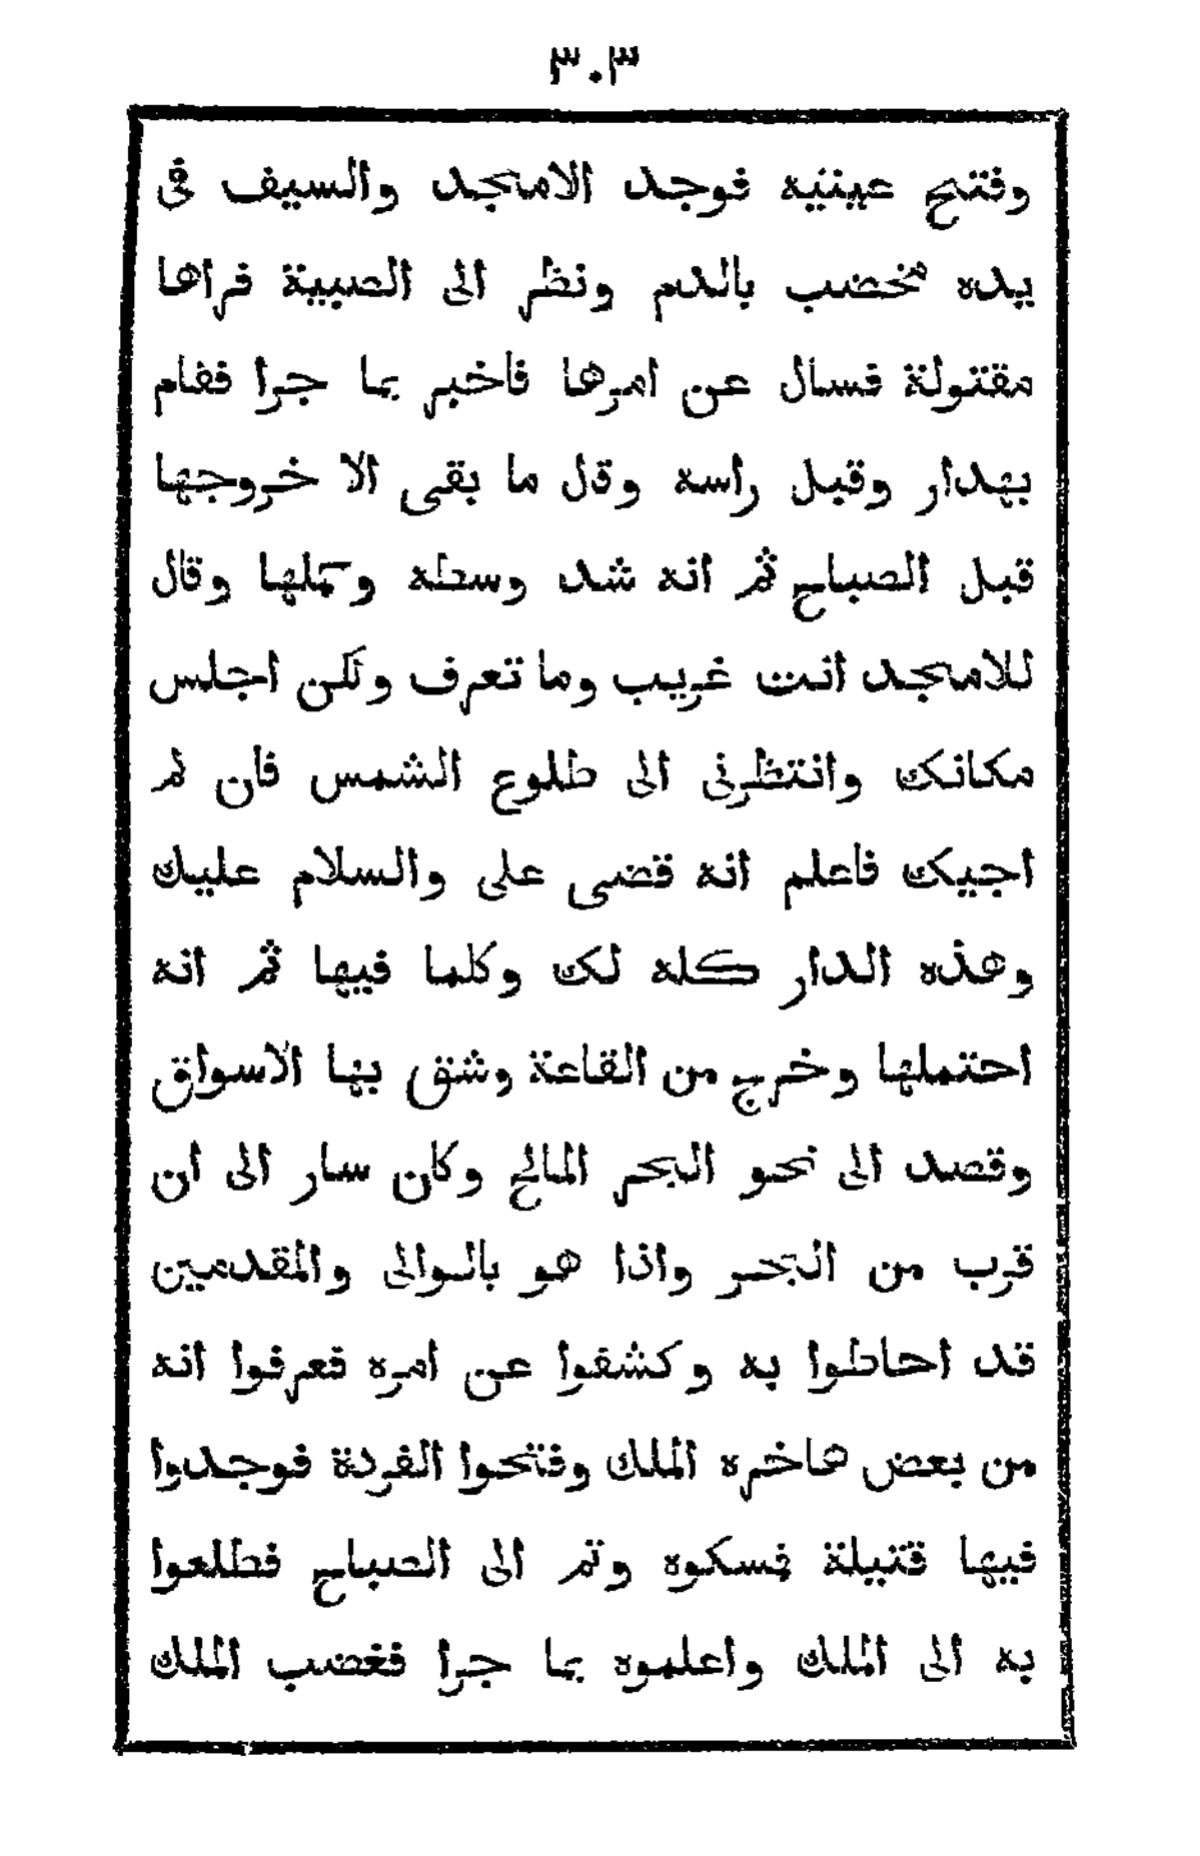 ٣٠٣
وفتح عينيه فوجد الامتجد والسيف فى
يده مخضب بالدم ونظر الى الصبية فراها
مقتولة فسال عن امرها فاخبر بما جرا فقام
بهدار وقبل راسه وقل ما بقى الا خروجها
قبل الصباح ثم انه شد وسطه وحملها وقال
للامجد انت غريب وما تعرف ولكن اجلس
مكانك وانتظرنى الى طلوع الشمس فان لم
اجيك فاعلم انه قضى على والسلام عليك
وهذه الدار كله لك وكلما فيها ثم انه
احتملها وخرج من القاعة وشق بها الاسواق
وقصد الى نحو البحر المالح وكان سار الى ان
قرب من البحر واذا هو بالوالى والمقدمين
قد احاطوا به وكشفوا عن امره فعرفوا انه
من بعض هاخره الملك وفتحوا الفردة فوجدوا
فيها قتيلة فسكوه وتم الى الصباح فطلعوا
به الى الملك واعلموه بما جرا فغضب الملك